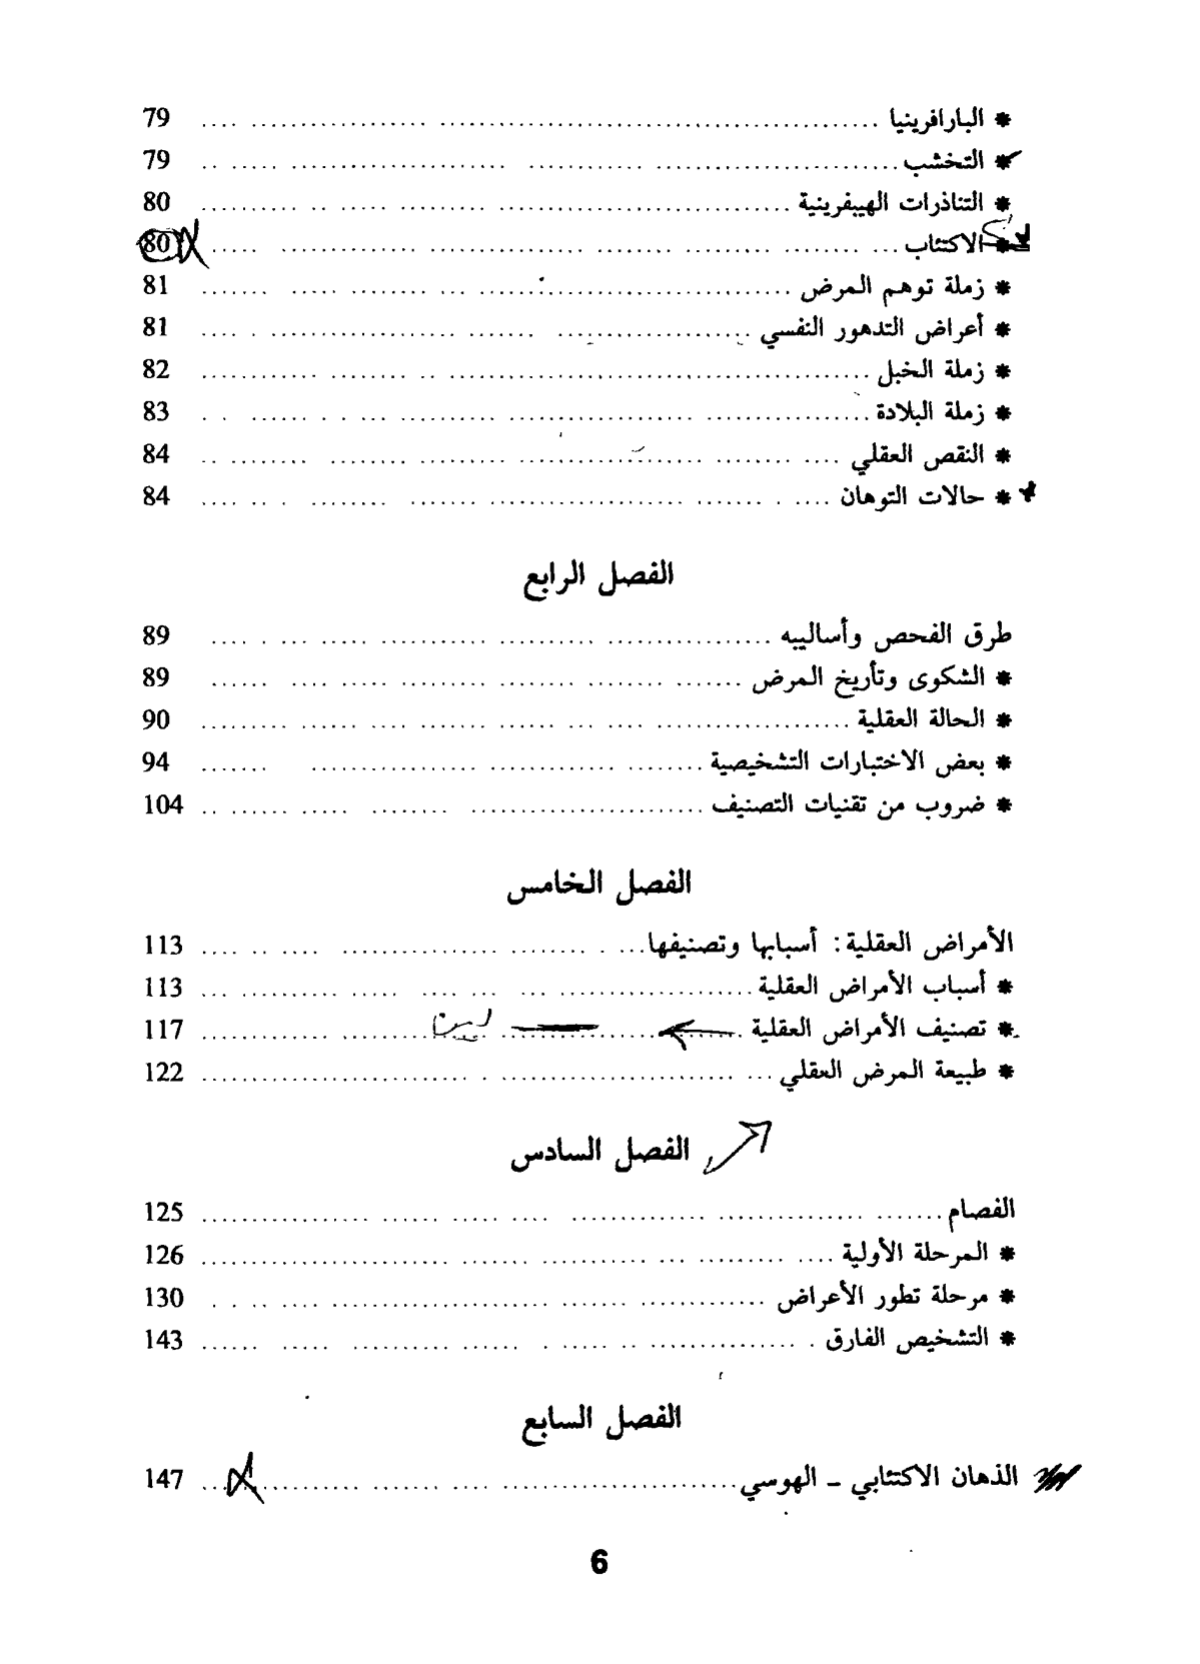 * البارافرينيا ........ 79
* التخشب ........ 79
* التناذرات الهيبفرينية ........ 80
* الاكتئاب ........ 80
* زملة توهم المرض ........ 81
* أعراض التدهور النفسي ........ 81
* زملة الخبل ........ 82
* زملة البلادة ........ 83
* النقص العقلي ........ 84
* حالات التوهان ........ 84
الفصل الرابع
طرق الفحص وأساليبه ........ 89
* الشكوى وتأريخ المرض ........ 89
* الحالة العقلية ........ 90
* بعض الاختبارات التشخيصية ........ 94
* ضروب من تقنيات التصنيف ........ 104
الفصل الخامس
الأمراض العقلية: أسبابها وتصنيفها ........ 113
* أسباب الأمراض العقلية ........ 113
* تصنيف الأمراض العقلية ........ 117
* طبيعة المرض العقلي ........ 122
الفصل السادس
الفصام ........ 125
* المرحلة الأولية ........ 126
* مرحلة تطور الأعراض ........ 130
* التشخيص الفارق ........ 143
الفصل السابع
الذهان الاكتئابي - الهوسي ........ 147
6